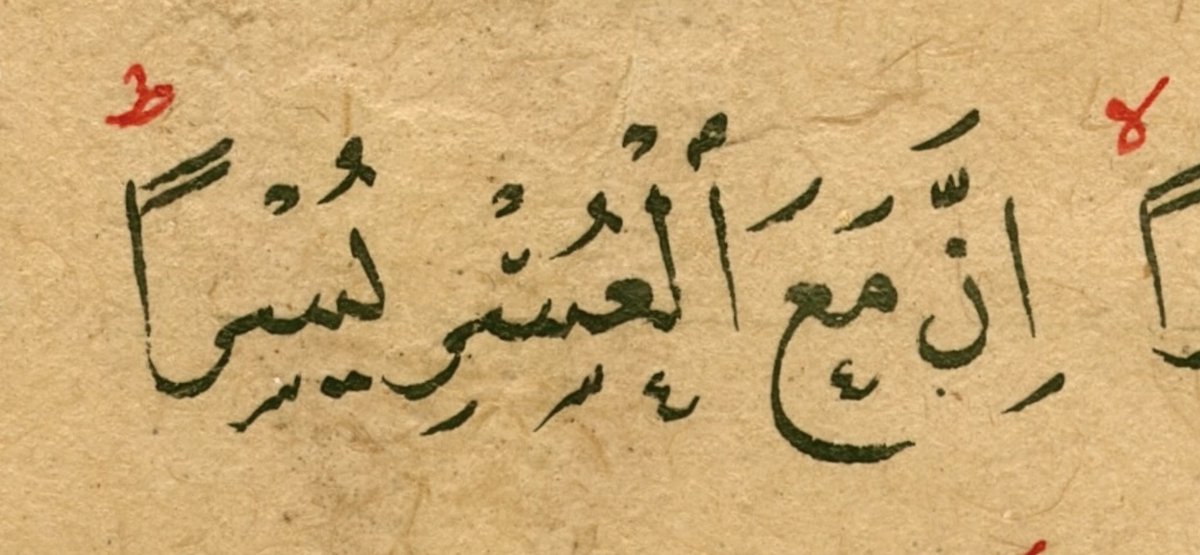 لا اِنَّ مَعَ ٱلْعُسْرِ يُسْراً ط